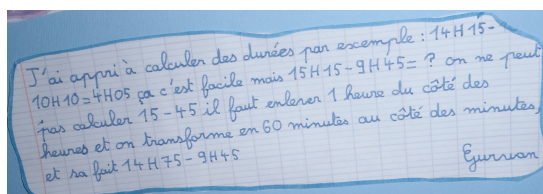 J'ai appri à calculer des durées par exemple : 14H15-
10H10=4H05 ça c'est facile mais 15H15-9H45= ? on ne peut
pas calculer 15-45 il faut enlever 1 heure du côté des
heures et on transforme en 60 minutes au côté des minutes,
et sa fait 14H75-9H45
Gurvan